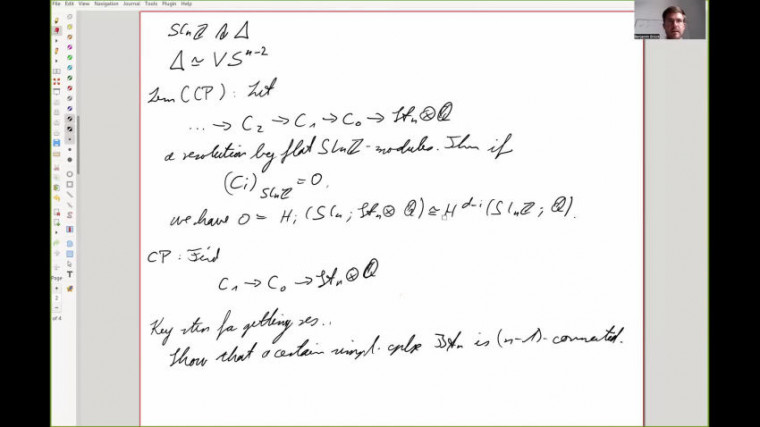 File Edit View Navigation Journal Tools Plugin Help
SlnZ ↷ Δ
Δ ≃ VS^{n-2}
Lem (CP): Let
... → C_2 → C_1 → C_0 → St_n ⊗ Q
a resolution by flat SlnZ-modules. Then if
(C_i)_{SlnZ} = 0.
we have 0 = H_i (Sl_n; St_n ⊗ Q) ≅ H^{d-i} (SlnZ; Q).
CP: Find
C_1 → C_0 → St_n ⊗ Q
Key step for getting res..
Show that a certain simpl. cplx BA_n is (n-1)-connected.
Page